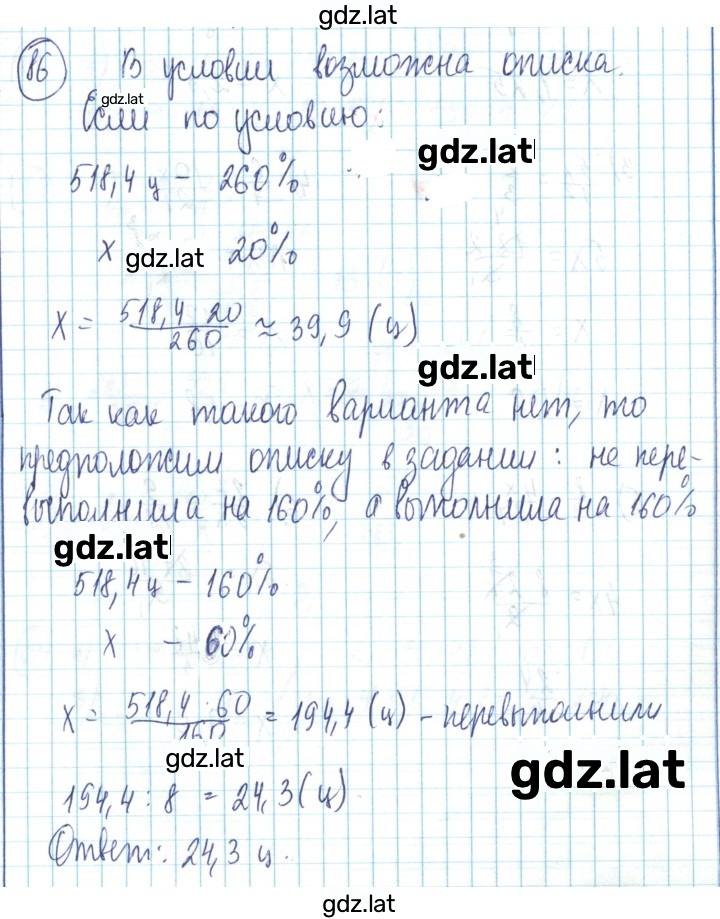 gdz.lat
86 В условии возможна описка.
gdz.lat
Если по условию:
gdz.lat
518,4 ц - 260%
x gdz.lat 20%
x = 518,4 · 20 / 260 ≈ 39,9 (ц)
gdz.lat
Так как такого варианта нет, то
предположим описку в задании: не пере-
выполнила на 160%, а выполнила на 160%
gdz.lat
518,4 ц - 160%
x - 60%
x = 518,4 · 60 / 160 = 194,4 (ц) - перевыполнили
gdz.lat
gdz.lat
194,4 : 8 = 24,3 (ц)
Ответ: 24,3 ц.
gdz.lat